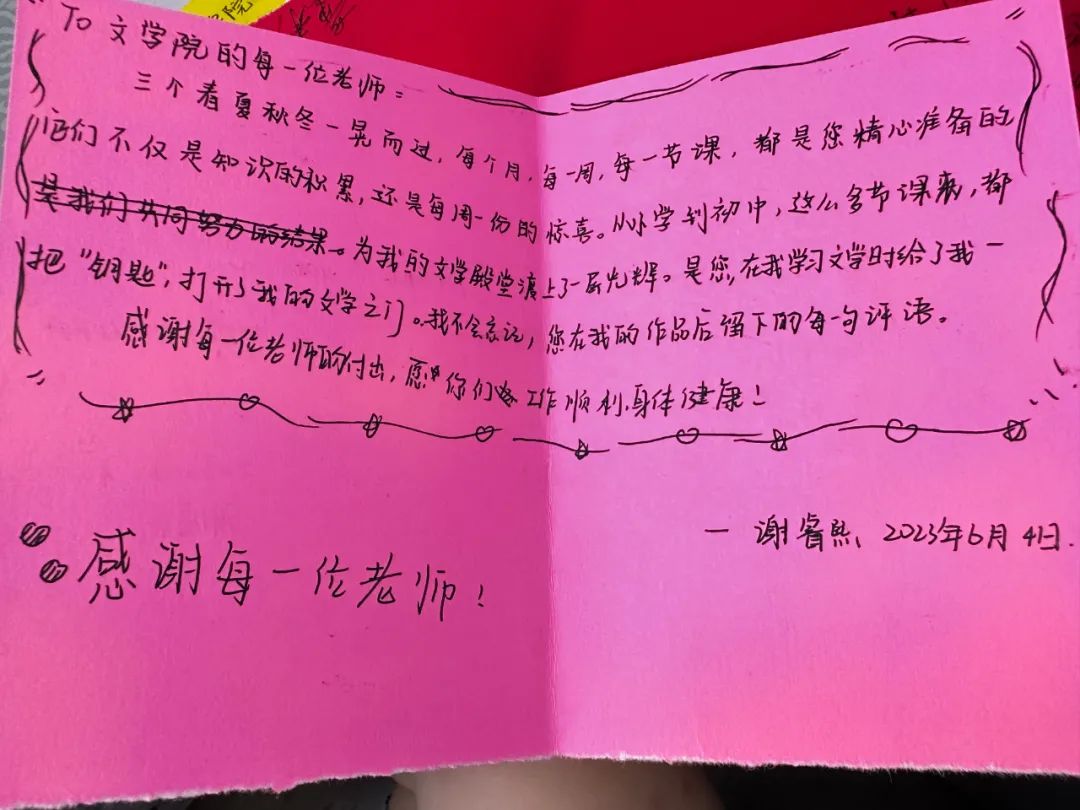 院
To 文学院的每一位老师：
三个春夏秋冬一晃而过，每个月，每一周，每一节课，都是您精心准备的
它们不仅是知识的积累，还是每周一份的惊喜。从小学到初中，这么多节课来，都
是我们共同努力的结果。为我的文学殿堂渡上了一层光辉。是您，在我学习文学时给了我一
把“钥匙”，打开了我的文学之门。我不会忘记，您在我的作品后留下的每一句评语。
感谢每一位老师的付出，愿你们工作顺利，身体健康！
— 谢睿熙、2023年6月4日.
感谢每一位老师！